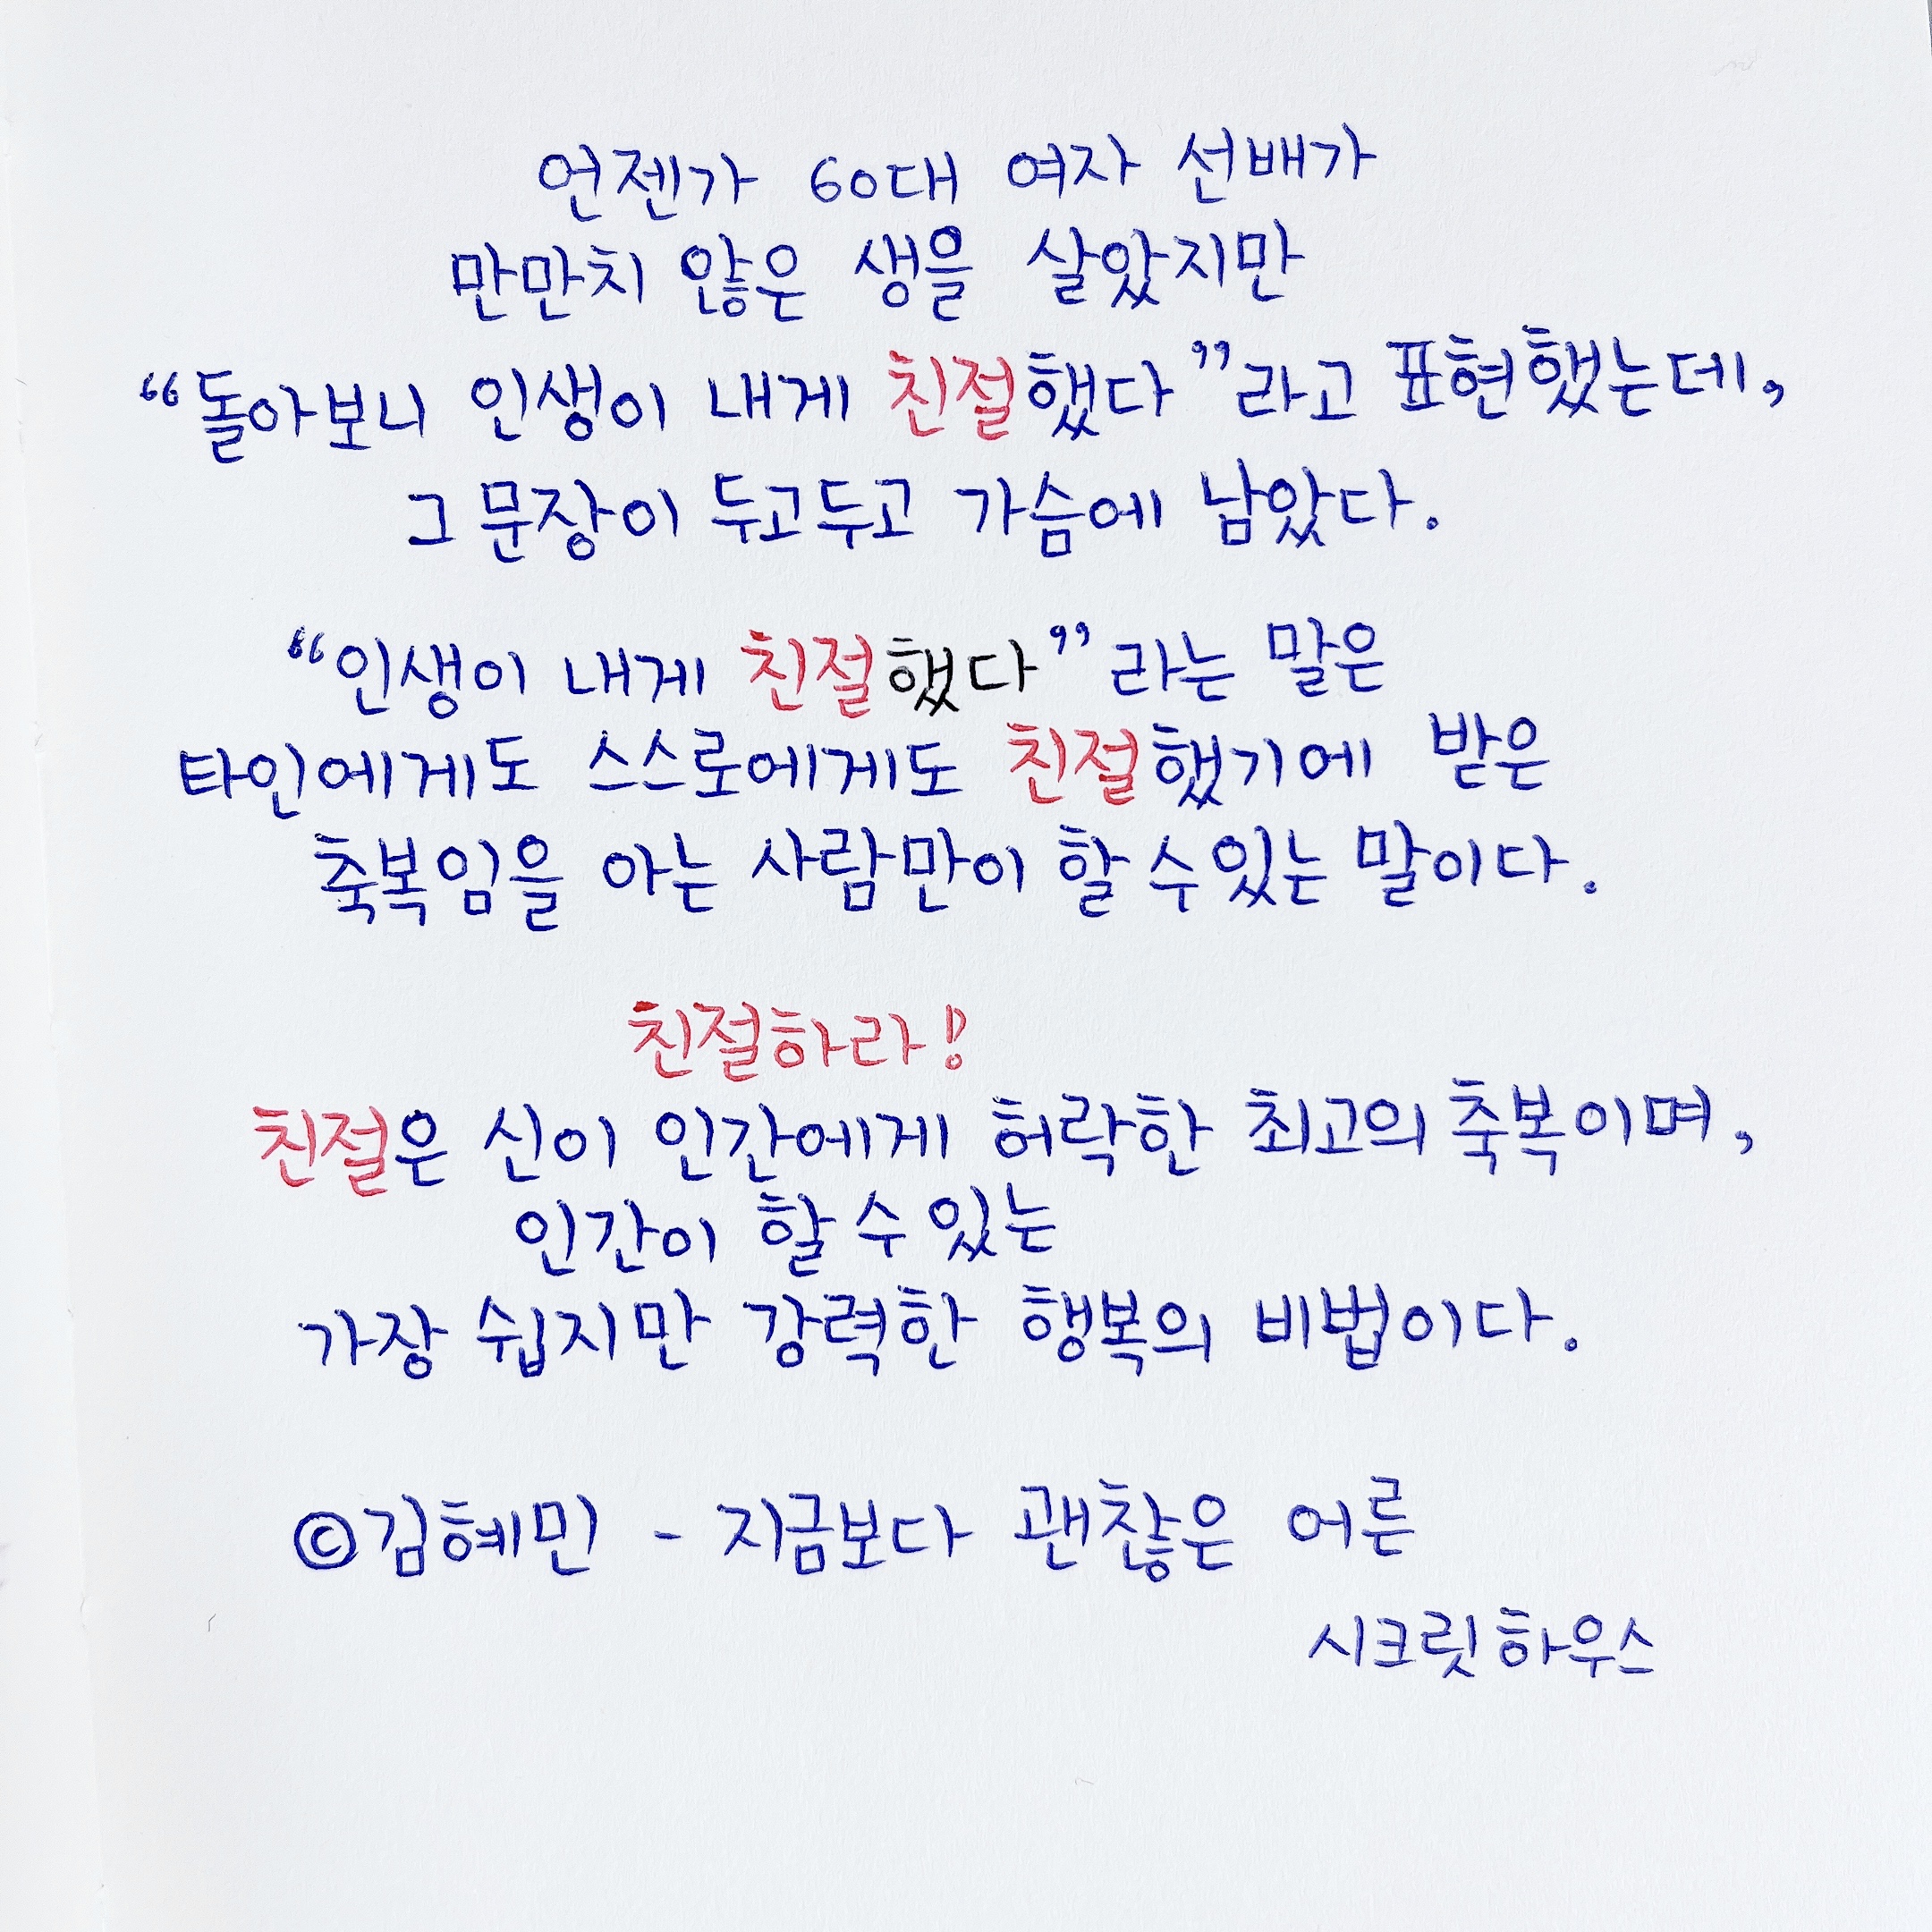 언젠가 60대 여자 선배가
만만치 않은 생을 살았지만
“돌아보니 인생이 내게 친절했다”라고 표현했는데,
그 문장이 두고두고 가슴에 남았다.
“인생이 내게 친절했다”라는 말은
타인에게도 스스로에게도 친절했기에 받은
축복임을 아는 사람만이 할 수 있는 말이다.
친절하라!
친절은 신이 인간에게 허락한 최고의 축복이며,
인간이 할 수 있는
가장 쉽지만 강력한 행복의 비법이다.
©김혜민 - 지금보다 괜찮은 어른
시크릿하우스